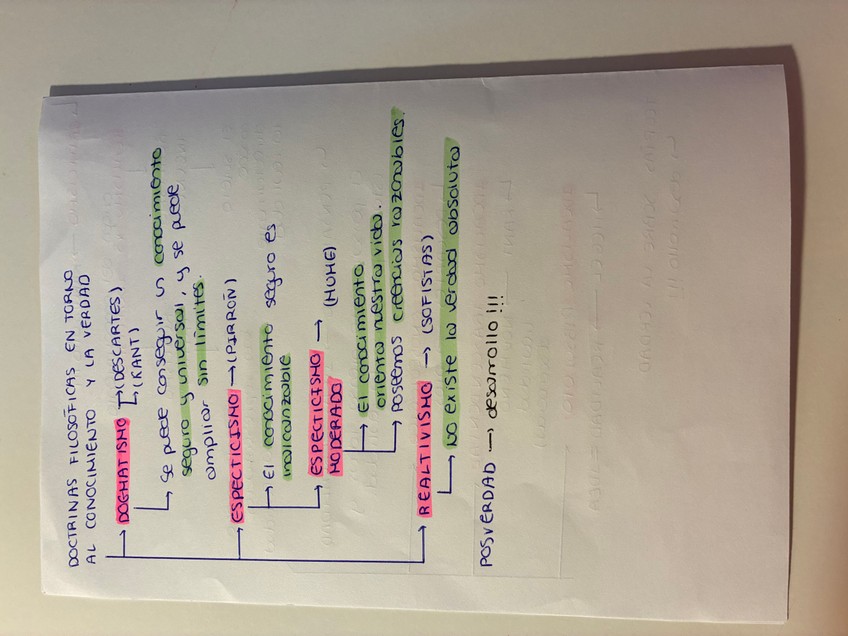 DOCTRINAS FILOSÓFICAS EN TORNO
AL CONOCIMIENTO Y LA VERDAD
→ DOGMATISMO → (DESCARTES)
→ (KANT)
→ Se puede conseguir un conocimiento
seguro y universal, y se puede
ampliar sin límites.
→ ESPECTICISMO → (PIRRÓN)
→ El conocimiento seguro es
inalcanzable
→ ESPECTICISMO → (HUME)
MODERADO
→ El conocimiento
orienta nuestra vida.
→ poseemos creencias razonables.
→ REALTIVISMO → (SOFISTAS)
→ No existe la verdad absoluta
POSVERDAD → desarrollo !!!